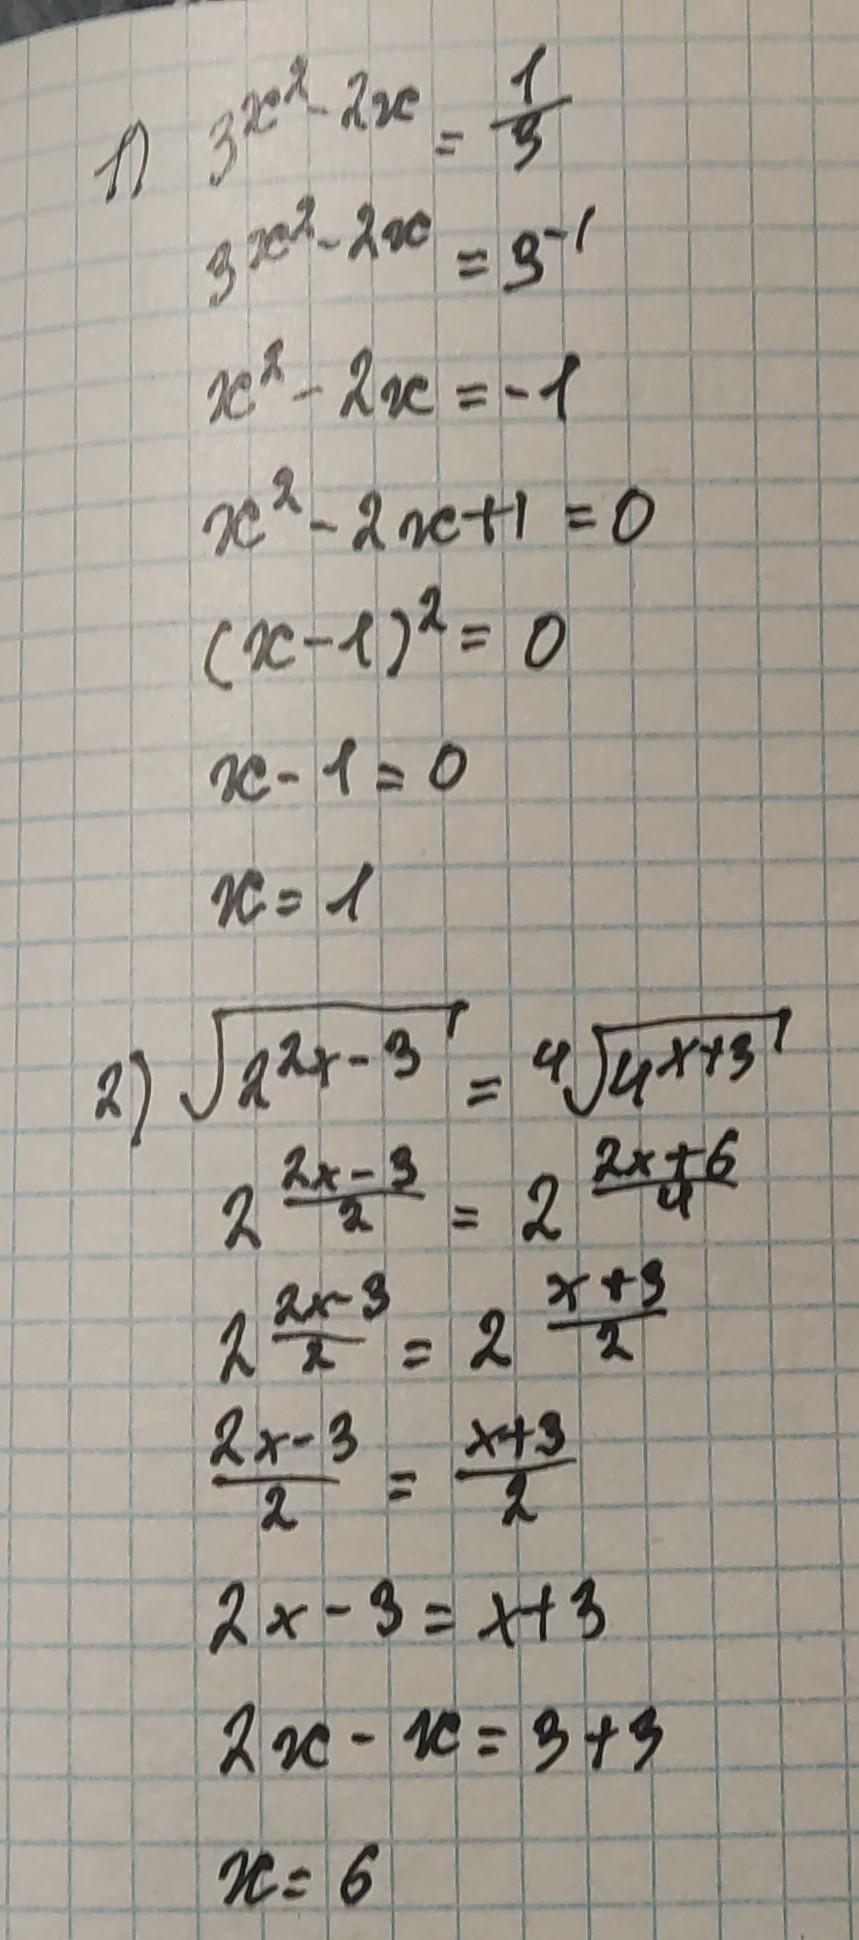 1) 3^{x^2-2x} = \frac{1}{3}
3^{x^2-2x} = 3^{-1}
x^2 - 2x = -1
x^2 - 2x + 1 = 0
(x - 1)^2 = 0
x - 1 = 0
x = 1
2) \sqrt{2^{2x-3}} = \sqrt[4]{4^{x+3}}
2^{\frac{2x-3}{2}} = 2^{\frac{2x+6}{4}}
2^{\frac{2x-3}{2}} = 2^{\frac{x+3}{2}}
\frac{2x-3}{2} = \frac{x+3}{2}
2x - 3 = x + 3
2x - x = 3 + 3
x = 6